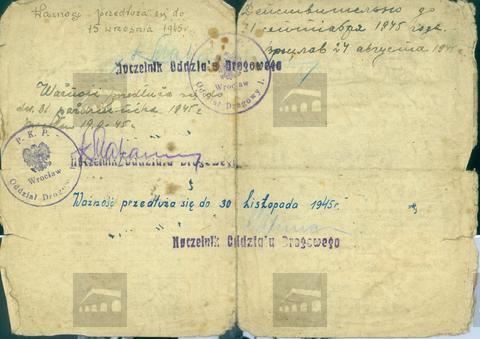 Ważność przedłuża się do
15 września 1945r
Действительно до
21 сентября 1945 года.
Вроцлав 24 августа 1945 г.
Naczelnik Oddziału Drogowego
Wrocław
Oddział Drogowy 1.
Ważność przedłuża się do
dn. 31 października 1945 r
19.9.45 r.
P. K. P.
Wrocław
Oddział Drogowy
Naczelnik Oddziału Drogowego
Ważność przedłuża się do 30 Listopada 1945r.
Naczelnik Oddziału Drogowego